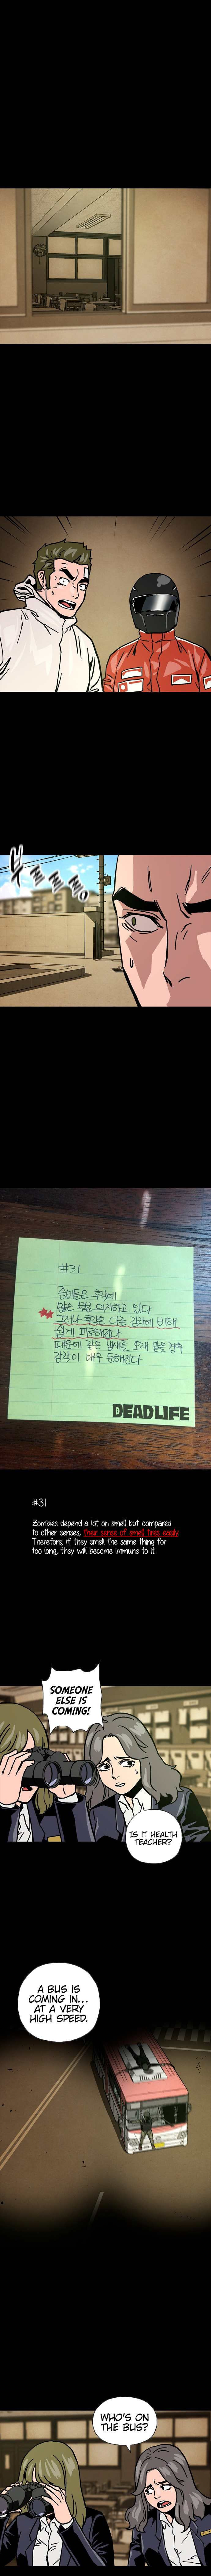 #31
좀비들은 후각에
많은 부분 의지하고 있다
그러나 후각은 다른 감각에 비해
쉽게 피로해진다
때문에 같은 냄새를 오래 맡을 경우
감각이 매우 둔해진다
DEADLIFE
#31
Zombies depend a lot on smell but compared
to other senses, their sense of smell tires easily.
Therefore, if they smell the same thing for
too long, they will become immune to it.
SOMEONE
ELSE IS
COMING!
IS IT HEALTH
TEACHER?
A BUS IS
COMING IN...
AT A VERY
HIGH SPEED.
WHO'S ON
THE BUS?